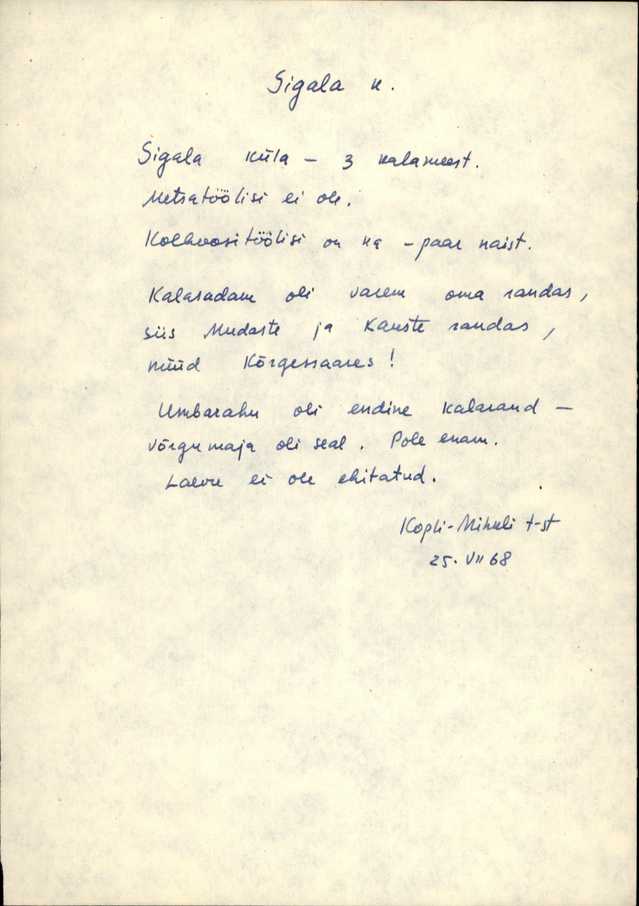 Sigala k.
Sigala küla – 3 kalameest.
Metsatöölisi ei ole.
Kolhoositöölisi on ka – paar naist.
Kalasadam oli varem oma randas,
siis Mudaste ja Kauste randas,
nüüd Kõrgessaares!
Umbarahu oli endine kalarand –
võrgumaja oli seal. Pole enam.
Laevu ei ole ehitatud.
Kopli-Mihkli t-st
25. VII 68